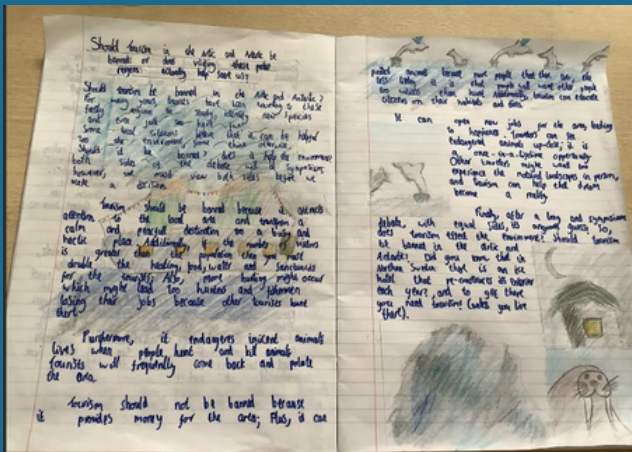 Should tourism in the Artic and Antartic be
banned? or does visiting these polar
regions actually help save us?
Should tourism be banned in the Artic and Antartic?
For many years tourists have been coming to these
new species
and even
Some local citizens believe that it can be helpful
to the environment, some think otherwise.
Should it be banned? Does it help the environment?
both sides of the debate will symposium
however, we must view both sides before we
make a decision.
Tourism should be banned because it attracts
attention to the local area and transform a
calm and peaceful destination on a busy and
hectic place. Additionally, if the number of visitors
is greater than the population then you must
double the heating, food, water and
for the tourists. Also, more hunting might occur
which might lead to hunters and fishermen
losing their jobs because other tourists hunt
there.
Furthermore, it endangeres injicent animals
lives when people hunt and kill animals
tourists will frequently come back and polute
the area.
Tourism should not be banned because
it provides money for the area; Plus, is can
protect animals because more people that
is that people will want other people
to witness that beauty. Additionally, tourism can educate
citizens on their habitats and areas.
It can open new jobs for the area, leading
to happiness. Travellers can see
endangered animals up-close; it is
a once-in-a-lifetime opportunity.
Other travellers might want to
experience the natural landscapes in person,
and tourism can help that dream
become a reality.
Finally, after a long and symposium
debate, with equal sides, its anyones guess. So,
does tourism effect the environment? Should tourism
be banned in the artic and
Antartic? Did you know that in
Northen Sweden there is an ice
hotel that re-onstruces its exterior
each year? and to get there
you need tourisme (unless you live
there).